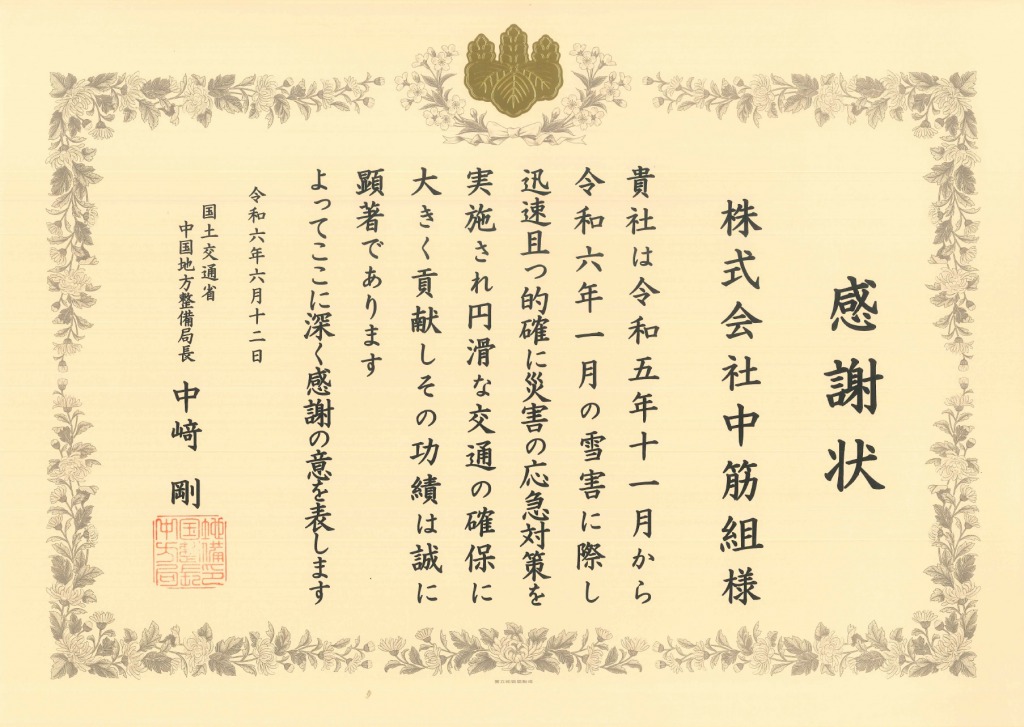 感謝状
株式会社中筋組様
貴社は令和五年十一月から
令和六年一月の雪害に際し
迅速且つ的確に災害の応急対策を
実施され円滑な交通の確保に
大きく貢献しその功績は誠に
顕著であります
よってここに深く感謝の意を表します
令和六年六月十二日
国土交通省
中国地方整備局長
中﨑 剛